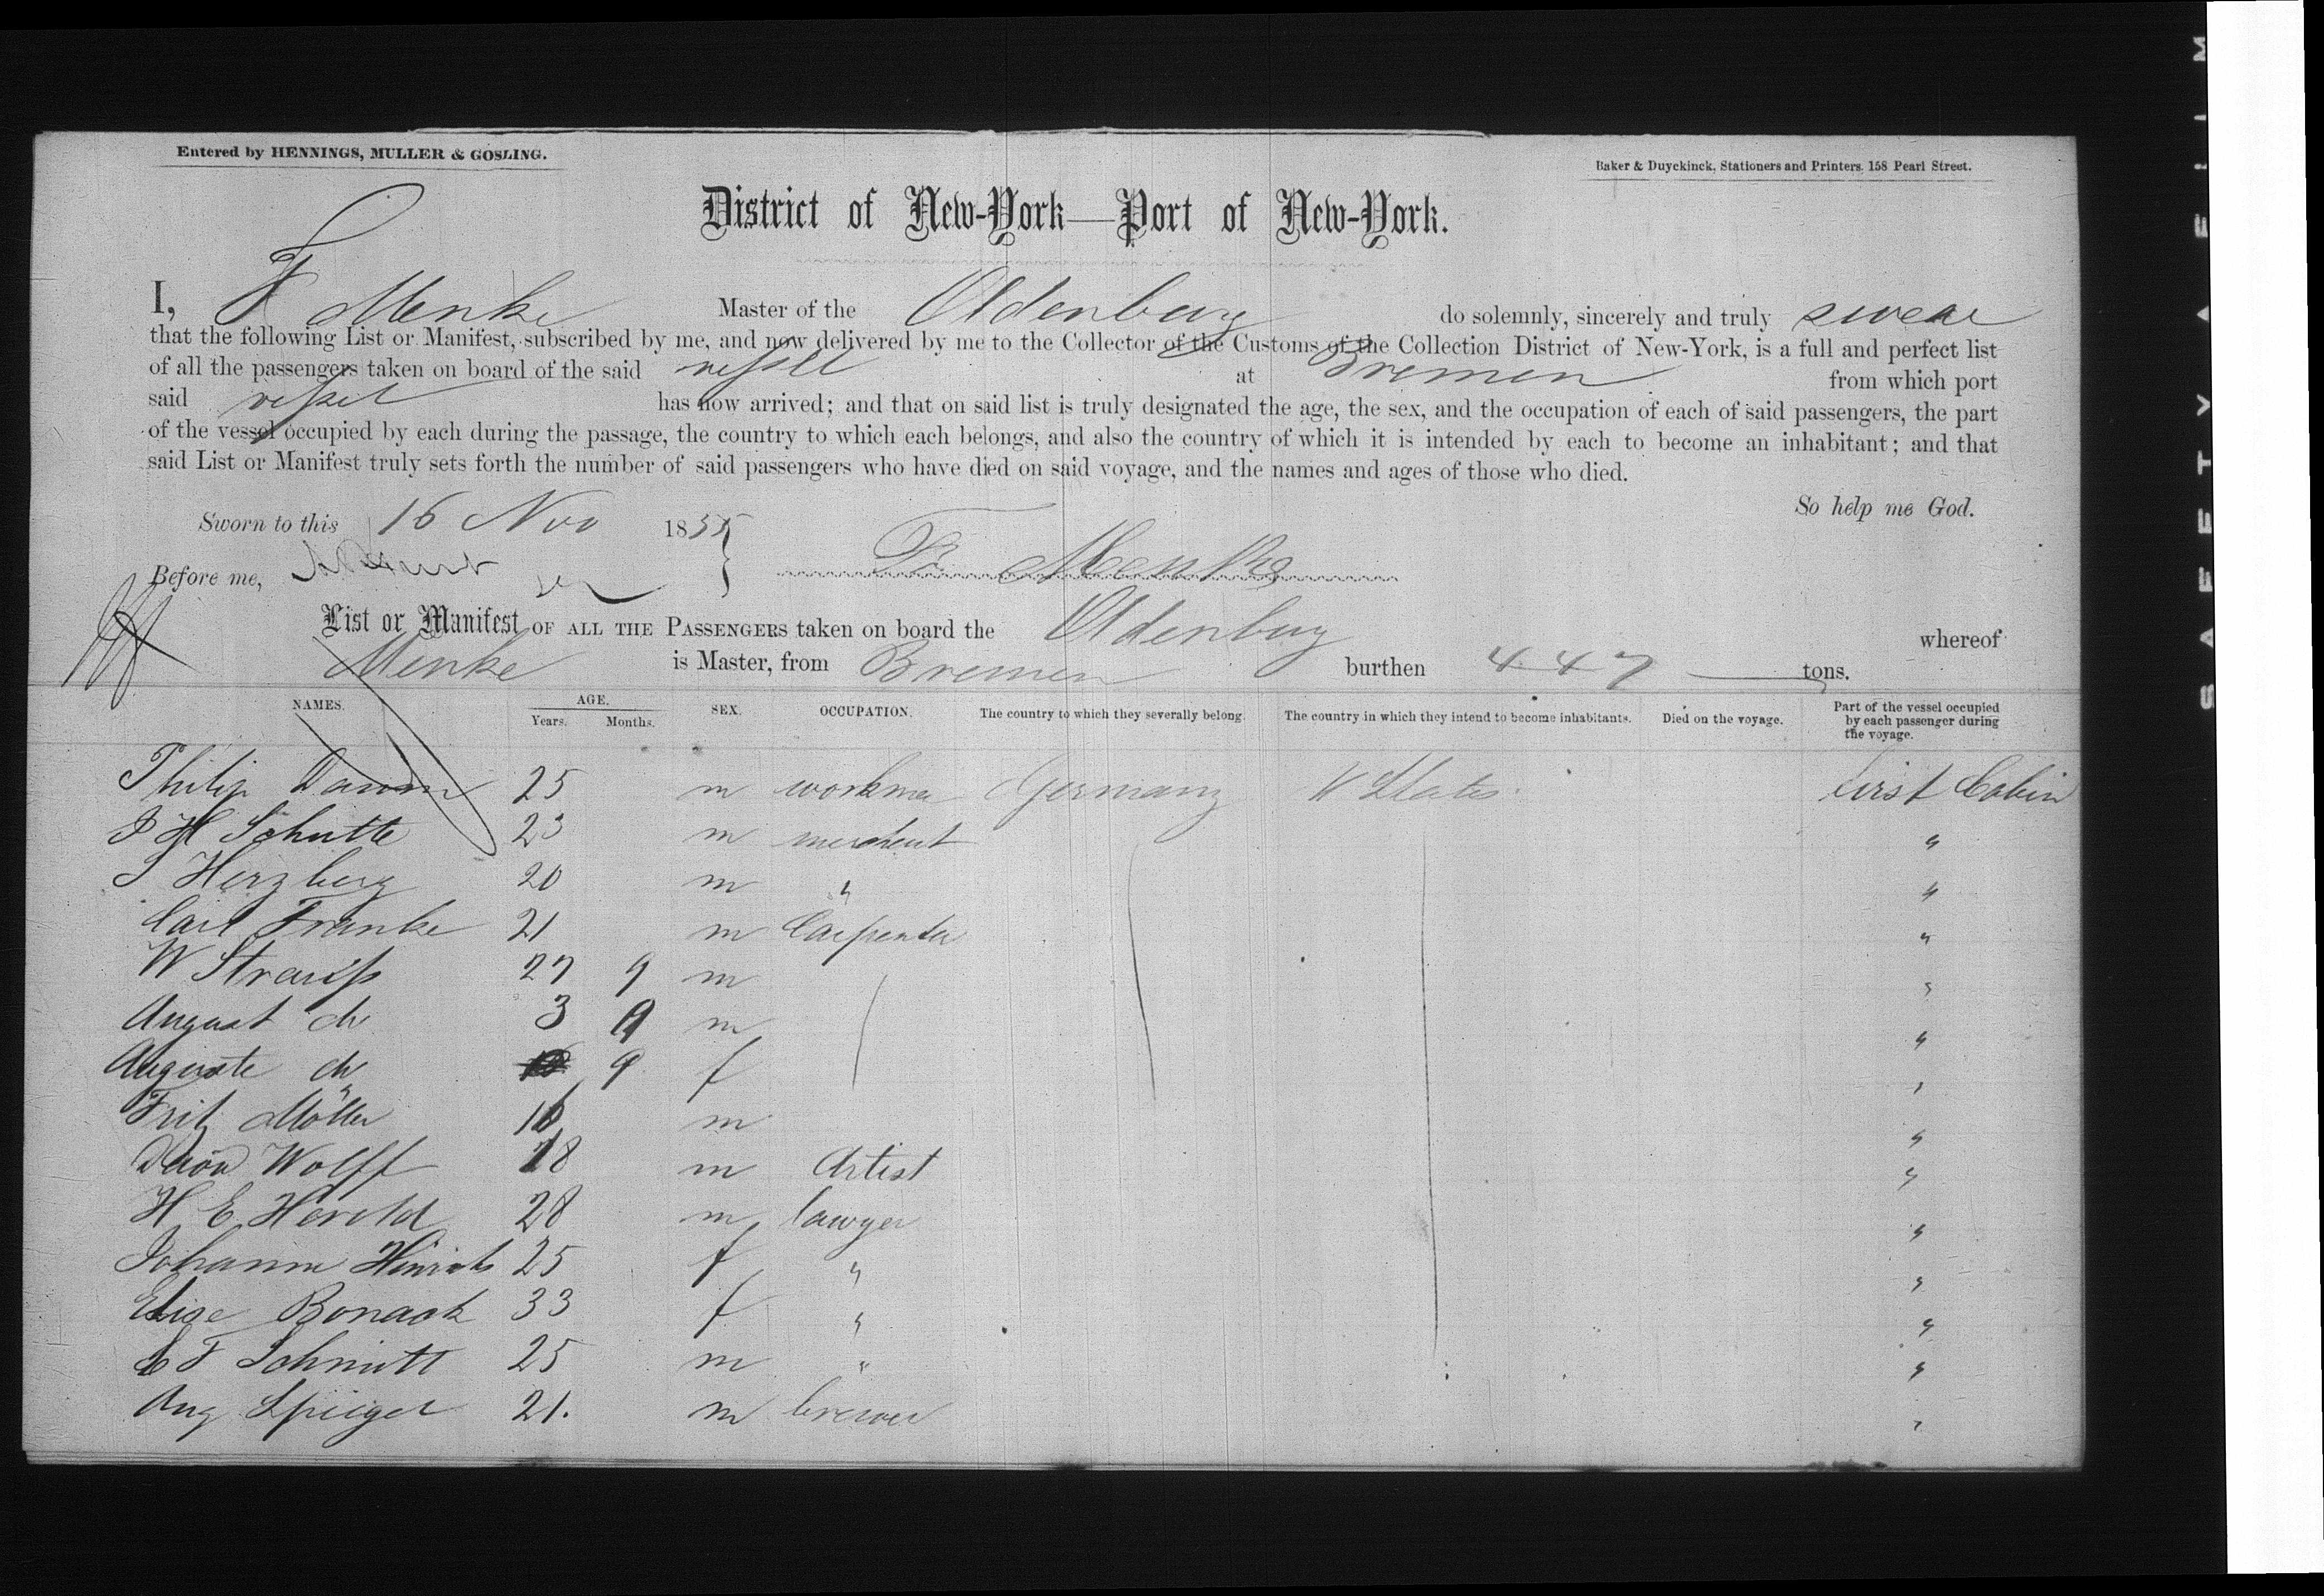 Entered by HENNINGS, MULLER & GOSLING.
Baker & Duyckinck, Stationers and Printers, 158 Pearl Street.
District of New-York—Port of New-York.
I, F Menke Master of the Oldenburg do solemnly, sincerely and truly swear
that the following List or Manifest, subscribed by me, and now delivered by me to the Collector of the Customs of the Collection District of New-York, is a full and perfect list
of all the passengers taken on board of the said vessell at Bremen from which port
said vessel has now arrived; and that on said list is truly designated the age, the sex, and the occupation of each of said passengers, the part
of the vessel occupied by each during the passage, the country to which each belongs, and also the country of which it is intended by each to become an inhabitant; and that
said List or Manifest truly sets forth the number of said passengers who have died on said voyage, and the names and ages of those who died.
So help me God.
Sworn to this 16 Nov 1855
Before me, Fr. Menke
List or Manifest OF ALL THE PASSENGERS taken on board the Oldenburg whereof
Menke is Master, from Bremen burthen 447 tons.
NAMES. AGE. Years. Months. SEX. OCCUPATION. The country to which they severally belong. The country in which they intend to become inhabitants. Died on the voyage. Part of the vessel occupied by each passenger during the voyage.
Philip Damm 25 m workma Germany U States First Cabin
H Schutte 23 m merchant "
Herzberg 20 m " "
Carl Franke 21 m Carpenter "
W Strauss 27 9 m "
August do 3 9 m "
Auguste do 9 f "
Fritz Möller 16 m "
Wolff 18 m Artist "
H E Herold 28 m lawyer "
Johanne Hinrichs 25 f " "
Elise Bonack 33 f " "
C F Schmitt 25 m " "
Aug Spieger 21. m brewer "
SAFETY FILM